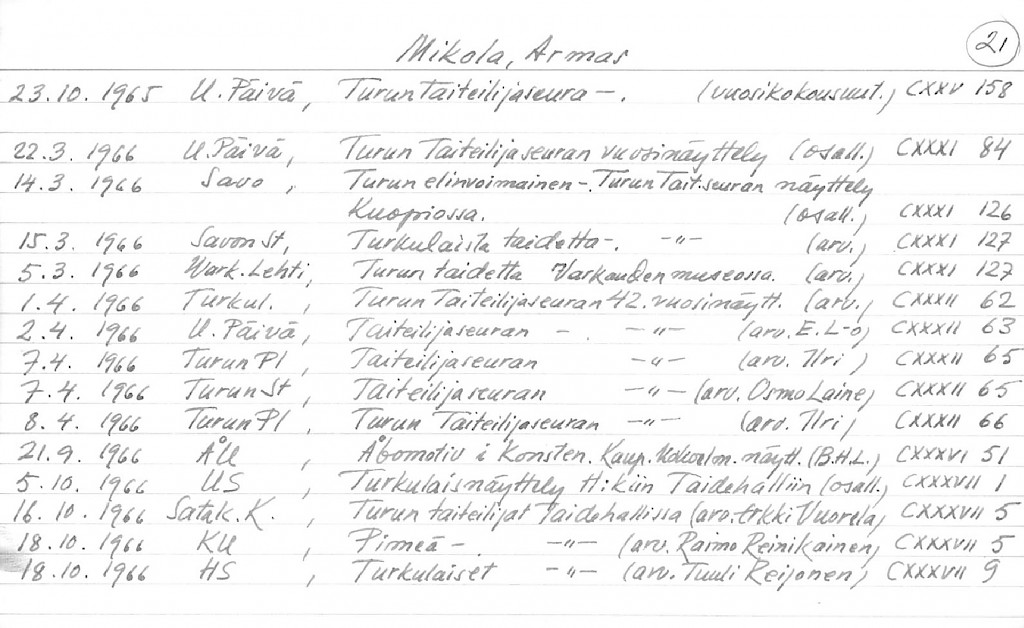 Mikola, Armas 21
23.10. 1965 U. Päivä, Turun Taiteilijaseura -. (vuosikokousuut.) CXXV 158
22.3. 1966 U. Päivä, Turun Taiteilijaseuran vuosinäyttely (osall.) CXXXI 84
14.3. 1966 Savo , Turun elinvoimainen -. Turun Tait.seuran näyttely
Kuopiossa. (osall.) CXXXI 126
15.3. 1966 Savon St, Turkulaista taidetta -. -"- (arv.) CXXXI 127
5.3. 1966 Wark. Lehti, Turun taidetta Varkauden museossa. (arv.) CXXXI 127
1.4. 1966 Turkul. , Turun Taiteilijaseuran 42. vuosinäytt. (arv.) CXXXII 62
2.4. 1966 U. Päivä, Taiteilijaseuran - -"- (arv. E. L-o) CXXXII 63
7.4. 1966 Turun Pl , Taiteilijaseuran -"- (arv. Ilri) CXXXII 65
7.4. 1966 Turun St , Taiteilijaseuran -"- (arv. Osmo Laine) CXXXII 65
8.4. 1966 Turun Pl , Turun Taiteilijaseuran -"- (arv. Ilri) CXXXII 66
21.9. 1966 ÅU , Åbomotiv i Konsten. Kaup. Kokoelm. näytt. (B.H.L.) CXXXVI 51
5.10. 1966 US , Turkulaisnäyttely H:kiin Taidehalliin (osall.) CXXXVII 1
16.10. 1966 Satak. K. , Turun taiteilijat Taidehallissa (arv. Erkki Vuorela) CXXXVII 5
18.10. 1966 KU , Pimeä -. -"- (arv. Raimo Reinikainen) CXXXVII 5
18.10. 1966 HS , Turkulaiset -"- (arv. Tuuli Reijonen) CXXXVII 9